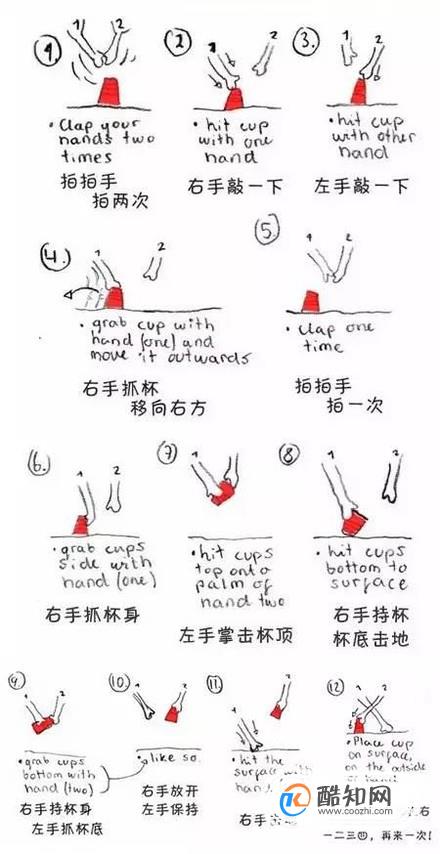 1.
2.
3.
1 2
2
1 2
• Clap your
hands two
times
拍拍手
拍两次
• hit cup
with one
hand
右手敲一下
• hit cup
with other
hand
左手敲一下
4.
5.
1 2
1 2
• grab cup with
hand (one) and
move it outwards
右手抓杯
移向右方
• clap one
time
拍拍手
拍一次
6.
7
8
1 2
1 2
1 2
• grab cups
side with
hand (one)
右手抓杯身
• hit cups
top onto
palm of
hand two
左手掌击杯顶
• hit cups
bottom to
surface
右手持杯
杯底击地
9
10
11
12
1 2
1 2
1 2
• grab cups
bottom with
hand (two)
右手持杯身
左手抓杯底
• like so.
右手放开
左手保持
• hit the
surface with
右手
• Place cup
on surface,
on the outside
右
一二三四，再来一次!
酷知网
www.coozhi.com